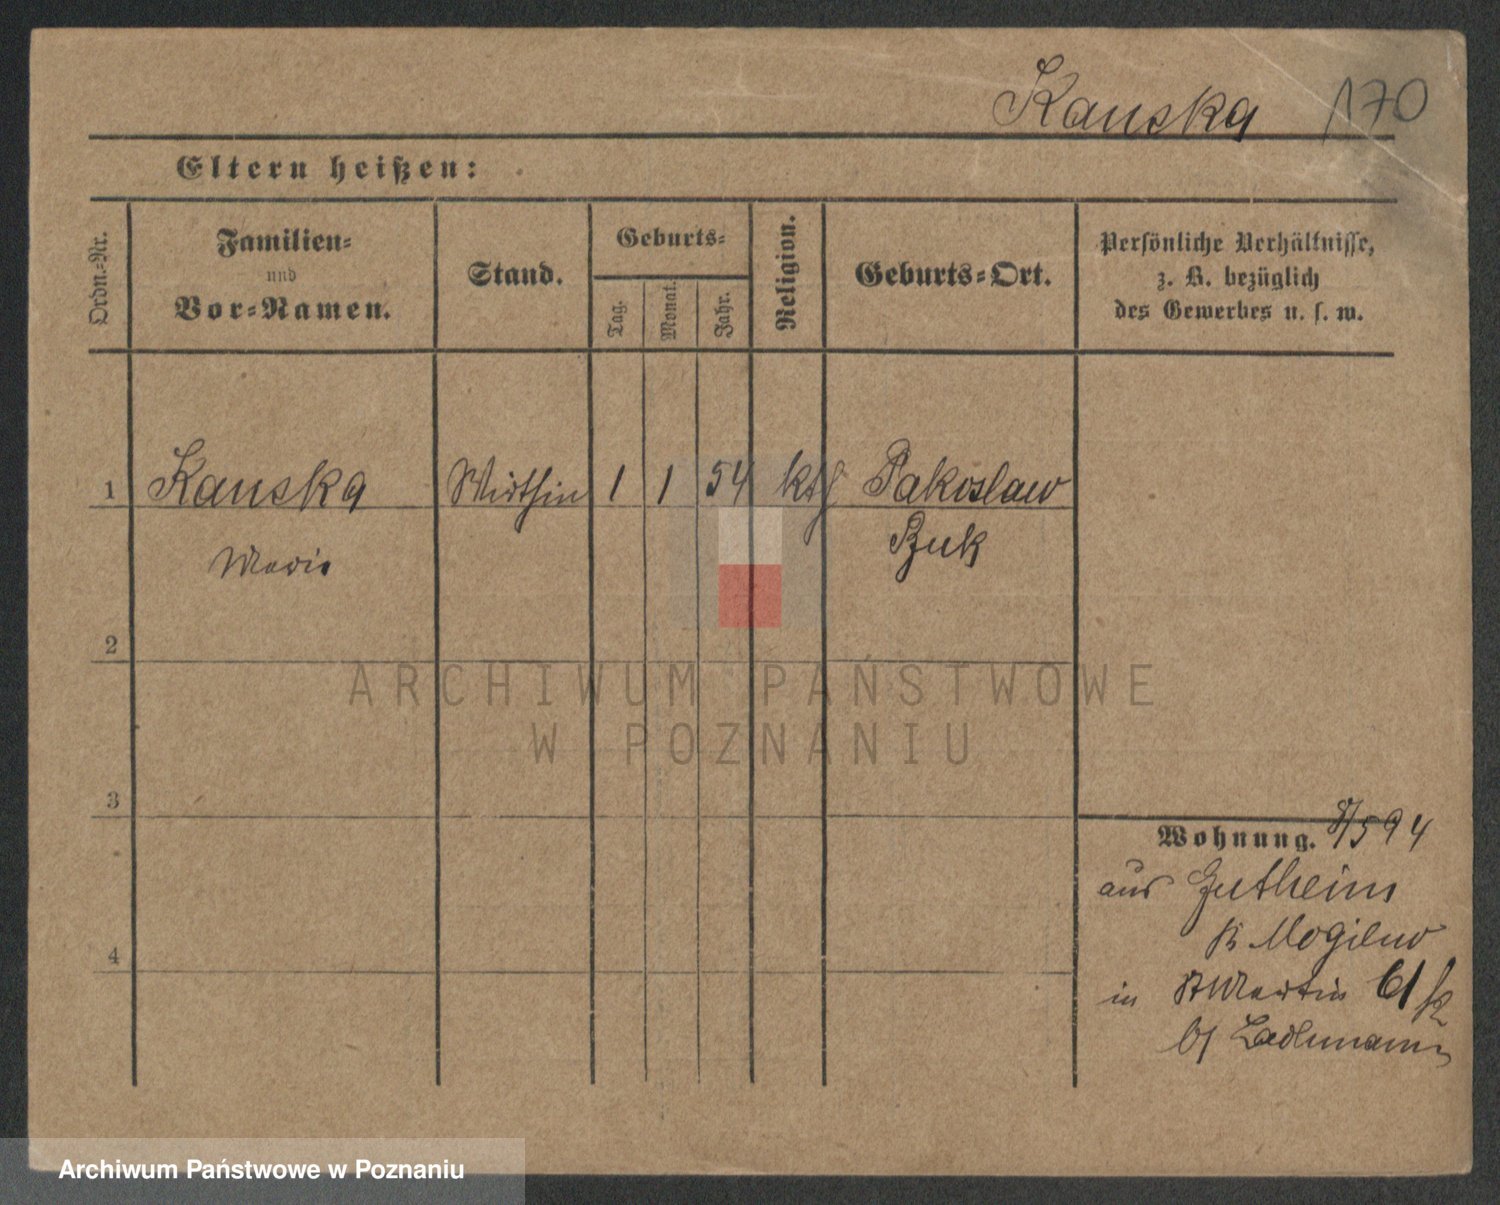 Kanska 170
Eltern heißen:
Ordn.-Nr.
Familien-
und
Vor-Namen.
Stand.
Geburts-
Tag.
Monat.
Jahr.
Religion.
Geburts-Ort.
Persönliche Verhältnisse,
z. B. bezüglich
des Gewerbes u. s. w.
1 Kanska Wirthin 1 1 54 kth Pakoslaw
Marie Buk
2
ARCHIWUM PAŃSTWOWE
W POZNANIU
3
Wohnung. 8/5 94
aus Gutheim
Kr Mogilno
4
in St Martin 61
bei Lademann
Archiwum Państwowe w Poznaniu